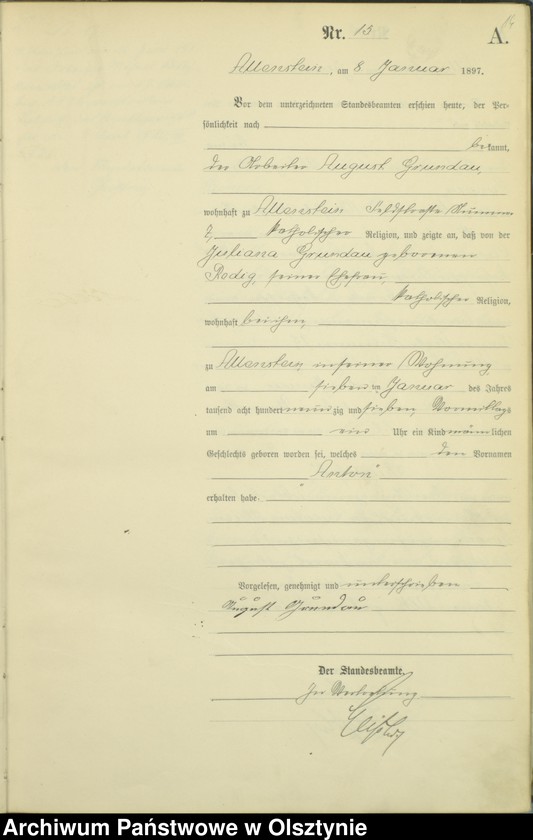 14
Nr. 15
A.
Allenstein, am 8 Januar 1897.
Vor dem unterzeichneten Standesbeamten erschien heute, der Per-
sönlichkeit nach
bekannt,
der Arbeiter August Grundau,
wohnhaft zu Allenstein Feldstraße Nummer
2, katholischer Religion, und zeigte an, daß von der
Juliana Grundau geborenen
Rodig, seiner Ehefrau,
katholischer Religion,
wohnhaft bei ihm,
zu Allenstein in seiner Wohnung
am sieben ten Januar des Jahres
tausend acht hundert neunzig und sieben Vormittags
um ein Uhr ein Kind männlichen
Geschlechts geboren worden sei, welches den Vornamen
„Anton“
erhalten habe.
Vorgelesen, genehmigt und unterschrieben
August Grundau
Der Standesbeamte.
In Vertretung
Archiwum Państwowe w Olsztynie